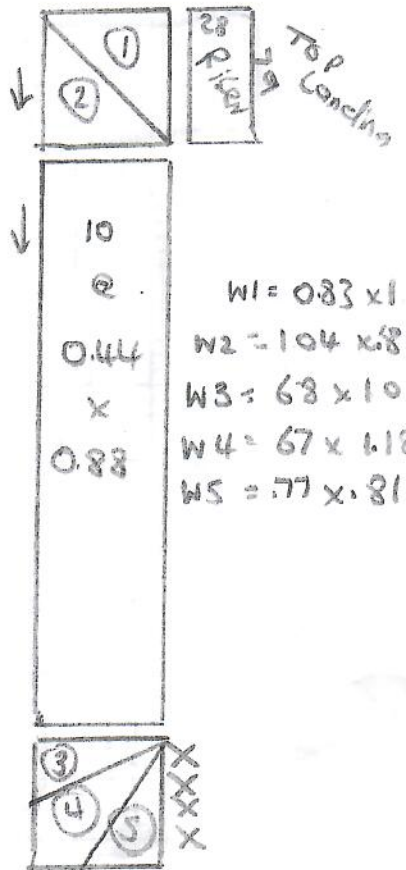 1
2
28
Riser
79
Top
Landing
10
@
0.44
x
0.88
W1 = 0.83 x 1
W2 = 104 x .8
W3 = 68 x 10
W4 = 67 x 1.18
W5 = .77 x .81
3
4
5
X
X
X
X